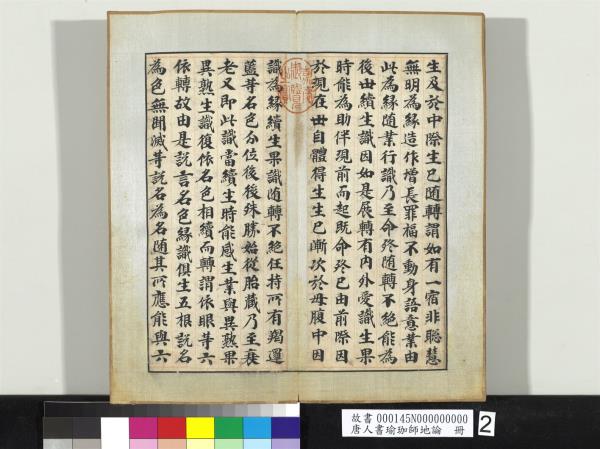 生及於中際生已随轉謂如有一宿非聡慧
無明為緣造作增長罪福不動身語意業由
此為緣随業行識乃至命終随轉不絶能為
後丗續生識因如是展轉有内外愛識生果
時能為助伴現前而起既命終已由前際因
於現在丗自體得生生已漸次於母腹中因
識為緣續生果識随轉不絶任持所有羯邏
藍等名色分位後後殊勝始從胎藏乃至衰
老又即此識當續生時能感生業與異熟果
異熟生識復依名色相續而轉謂依眼等六
依轉故由是説言名色緣識俱生五根説名
為色無間滅等説名為名随其所應能與六
故書 000145N000000000
唐人書瑜珈師地論 冊
2